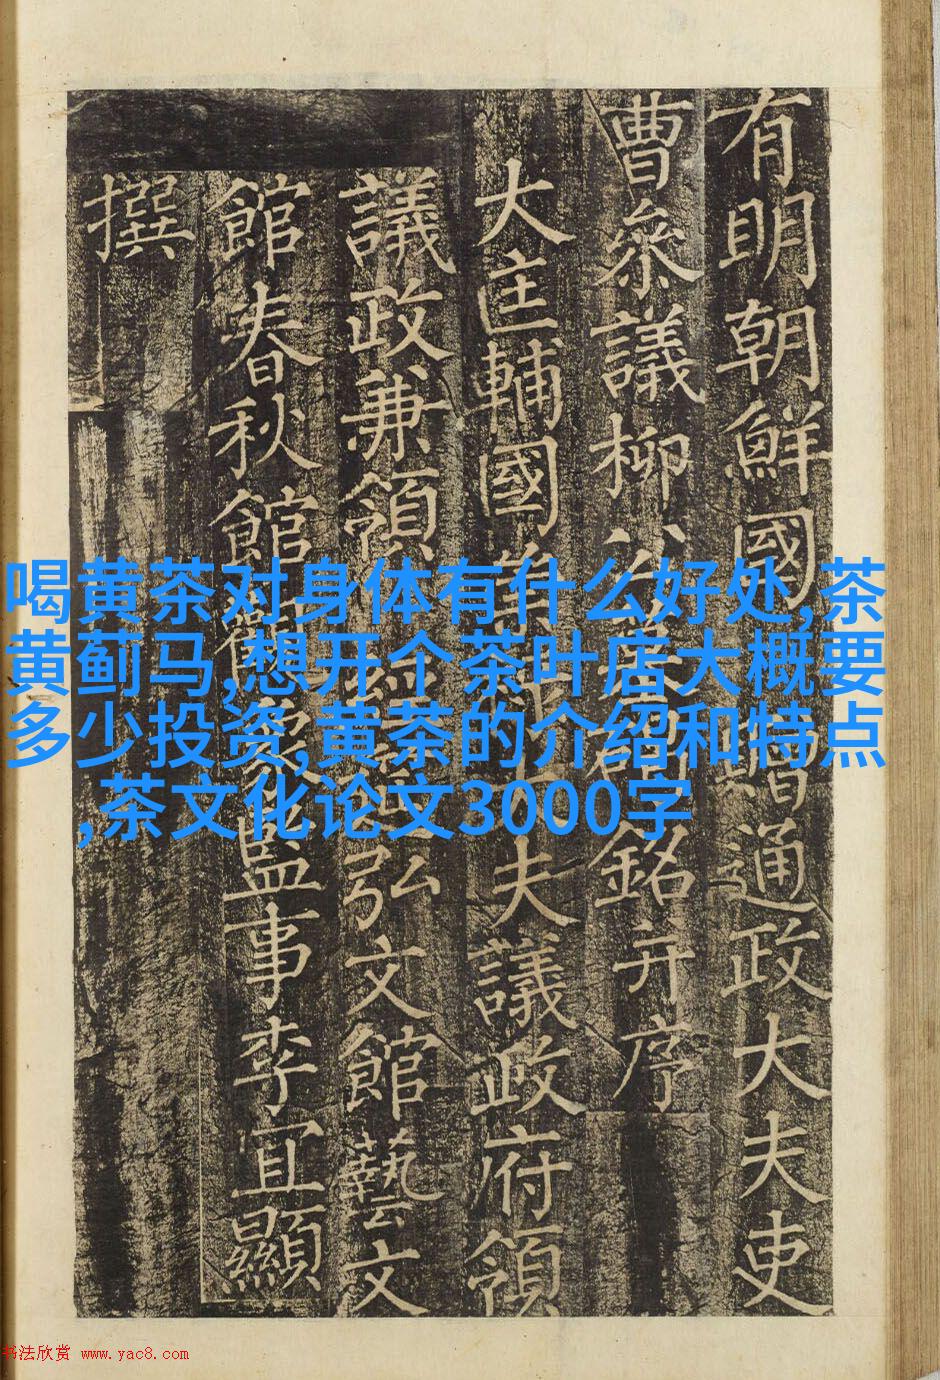 有明朝鮮國贈通政大夫吏
曹叅議柳公銘并序
大匡輔國崇祿大夫議政府領
議政兼領經筵弘文館藝文
館春秋館觀象監事李宜顯
撰
喝黄茶对身体有什么好处,茶
黄蓟马,想开个茶叶店大概要
多少投资,黄茶的介绍和特点
,茶文化论文3000字
书法欣赏 www.yac8.com